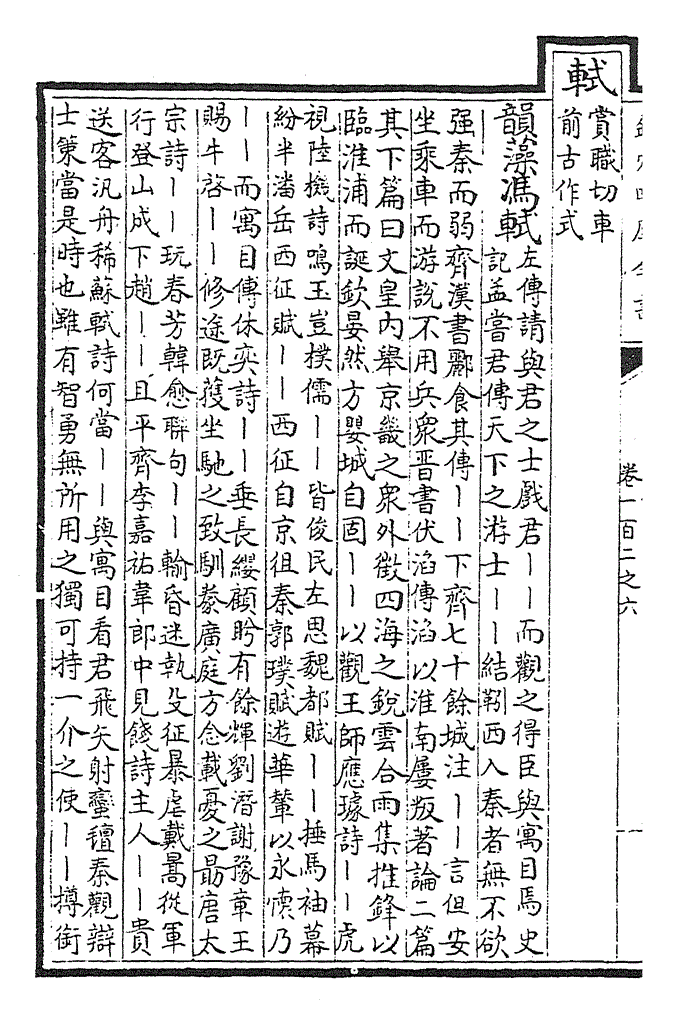 卷一百二之六
一
軾
賞職切車
前古作式
韻藻馮軾
左傳請與君之士戲君——而觀之得臣與寓目焉史
記孟嘗君傳天下之游士——結靷西入秦者無不欲
强秦而弱齊漢書酈食其傳——下齊七十餘城注——言但安
坐乘車而游說不用兵衆晉書伏滔傳滔以淮南屢叛著論二篇
其下篇曰文皇內舉京畿之衆外徵四海之銳雲合雨集推鋒以
臨淮浦而誕欽晏然方嬰城自固——以觀王師應璩詩——虎
視陸機詩鳴玉豈樸儒——皆俊民左思魏都賦——捶馬袖幕
紛半潘岳西征賦——西征自京徂秦郭璞賦遊華輦以永懷乃
——而寓目傅休奕詩——垂長纓顧盼有餘輝劉潛謝豫章王
賜牛啓——修途既獲坐馳之致馴豢廣庭方念載憂之勗唐太
宗詩——玩春芳韓愈聯句——輸昏迷執殳征暴虐戴暠從軍
行登山成下趙——且平齊李嘉祐韋郎中見餞詩主人——貴
送客汎舟稀蘇軾詩何當——與寓目看君飛矢射蠻氊秦觀辯
士策當是時也雖有智勇無所用之獨可持一介之使——摶銜